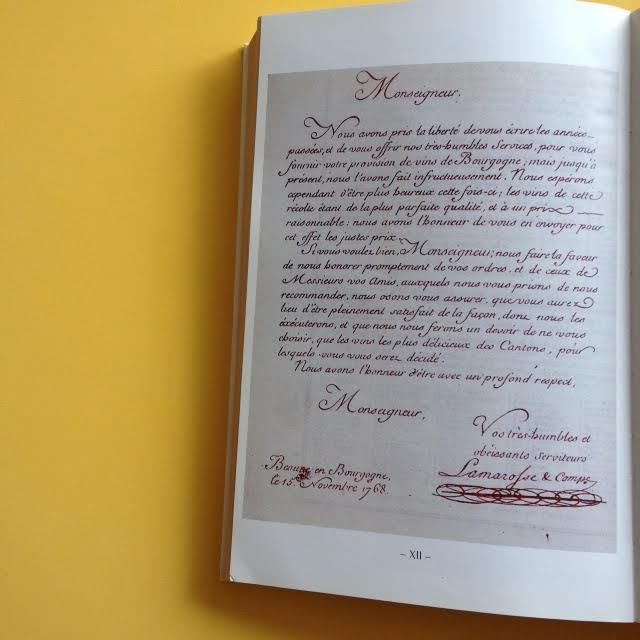 Monseigneur,
Nous avons pris la liberté de vous écrire les années
passées, et de vous offrir nos très-humbles Services, pour vous
fournir votre provision de vins de Bourgogne; mais jusqu'à
présent, nous l'avons fait infructueusement. Nous espérons
cependant d'être plus heureux cette fois-ci; les vins de cette
récolte étant de la plus parfaite qualité, et à un prix
raisonnable: nous avons l'honneur de vous en envoyer pour
cet effet les justes prix.
Si vous voulez bien, Monseigneur, nous faire la faveur
de nous honorer promptement de vos ordres, et de ceux de
Messieurs vos Amis, auxquels nous vous prions de nous
recommander, nous osons vous assurer, que vous aurez
lieu d'être pleinement satisfait de la façon, dont nous les
éxécuterons, et que nous nous ferons un devoir de ne vous
choisir, que les vins les plus délicieux des Cantons, pour
lesquels vous vous serez décidé.
Nous avons l'honneur d'être avec un profond respect,
Monseigneur,
Vos très-humbles et
obéissants serviteurs
Lamarosse & Compe
Beaune en Bourgogne,
le 15. Novembre 1768.
– XII –